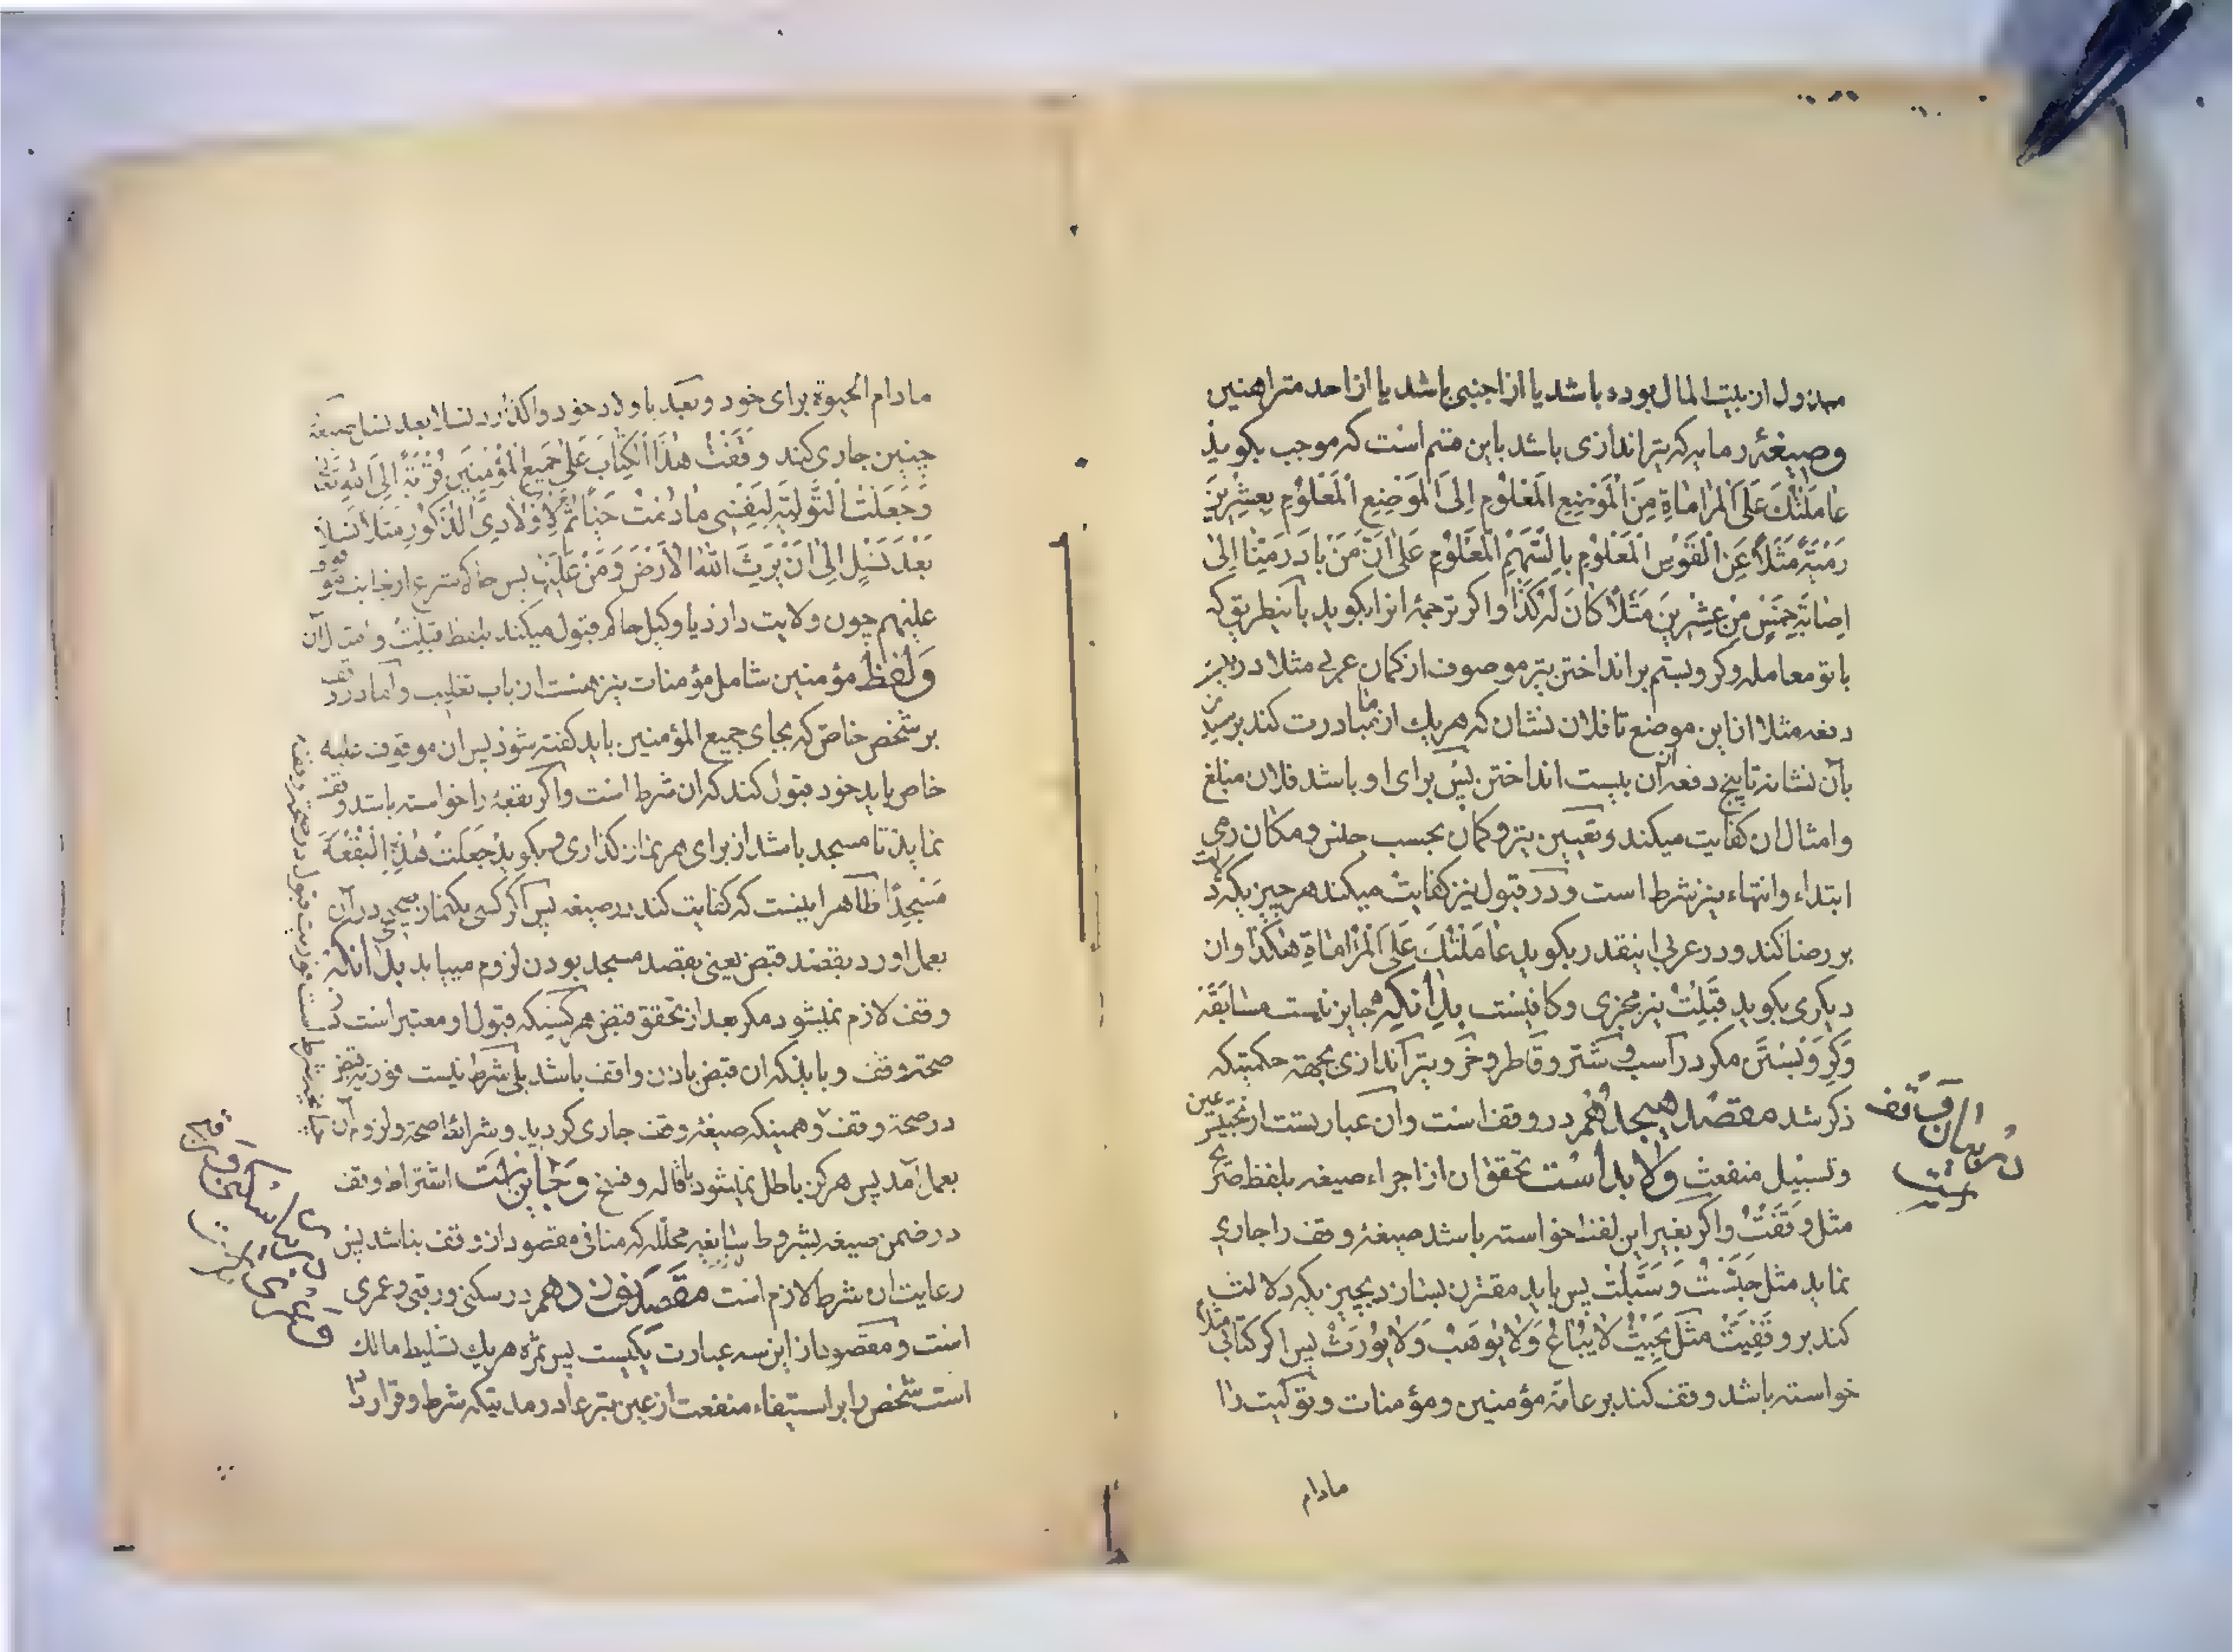 مبذول از بیت المال بوده باشد یا از اجنبی باشد یا از احد متراهنین
وصیغهٔ رمایه که تیر اندازی باشد باین قسم است که موجب بکوید
عامَلْتُكَ عَلَى المُراماةِ مِنَ المَوْضِعِ المَعْلُومِ اِلَى المَوْضِعِ المَعْلُومِ بِعِشْرِینَ
رَمْیَةً مَثَلاً عَنِ القَوْسِ المَعْلُومِ بِالسَّهْمِ المَعْلُومِ عَلى اَنَّ مَنْ بادَرَ مِنّا اِلى
اِصابَةِ خَمْسٍ مِنْ عِشْرِینَ مَثَلاً كانَ لَهُ كَذا واکر ترجمهٔ انرا بکوید باینطریق که
با تو معامله وکرو بستم بر انداختن تیر موصوف از کمان عربی مثلا در بیست
دفعه مثلا از این موضع تا فلان نشان که هر یك از ما مبادرت کند برسیدن
بآن نشانه تا پنج دفعه از آن بیست انداختن پس برای او باشد فلان مبلغ
وامثال ان کفایت میکند وتعیین تیر وکمان بحسب جنس ومکان رمی
ابتداء وانتهاء نیز شرط است ودر قبول نیز کفایت میکند هر چیزیکه دلالت
بر رضا کند ودر عربی اینقدر بکوید عامَلْتُكَ عَلَى المُراماةِ هكَذا وان
دیکری بکوید قَبِلْتُ نیز مجزی وکافیست بدانکه جایز نیست مسابقه
وکرو بستن مکر در اسب وشتر وقاطر وخر وتیر اندازی بجهة حکمتیکه
ذکر شد مقصد هیجدهم در وقف است وان عبارتست از تحبیس عین
وتسبیل منفعت ولابد است تحقق ان از اجراء صیغه بلفظ صریح
مثل وَقَفْتُ واکر بغیر این لفظ خواسته باشد صیغهٔ وقف را جاری
نماید مثل حَبَسْتُ وَسَبَّلْتُ پس باید مقترن بسازد بچیزیکه دلالت
کند بر وقفیت مثل بِحَیْثُ لا یُباعُ وَلا یُوهَبُ وَلا یُورَثُ پس اکر کتابی مثلاً
خواسته باشد وقف کند بر عامّهٔ مؤمنین ومؤمنات وتولیت را
مادام
در بیان وقف است
مادام الحیوة برای خود وبعد باولاد خود واکذارد نسلا بعد نسل صیغه
چنین جاری کند وَقَفْتُ هٰذَا الْكِتابَ عَلى جَمیعِ المُؤْمِنینَ قُرْبَةً اِلَى اللهِ تَعالى
وَجَعَلْتُ التَّوْلِیَةَ لِنَفْسی ما دُمْتُ حَیّاً ثُمَّ لِاَوْلادِیَ الذُّكُورِ مَثَلاً نَسْلاً
بَعْدَ نَسْلٍ اِلى اَنْ یَرِثَ اللهُ الاَرْضَ وَمَنْ عَلَیْها پس حاکم شرع از جانب موقوف
علیهم چون ولایت دارد یا وکیل حاکم قبول میکند بلفظ قَبِلْتُ وامثال آن
وَلفظ مؤمنین شامل مؤمنات نیز هست از باب تغلیب واما در وقف
بر شخص خاص که بجای جمیع المؤمنین باید کفته شود پس ان موقوف علیه
خاص باید خود قبول کند که ان شرط است واکر بقعهٔ را خواسته باشد وقف
نماید تا مسجد باشد از برای هر نماز کذاری بکوید جَعَلْتُ هٰذِهِ الْبُقْعَةَ
مَسْجِداً ظاهر اینست که کفایت کند در صیغه پس اکر کسی یکنماز صحیحی در آن
بعمل اورد بقصد قبض یعنی بقصد مسجد بودن لزوم مییابد بدانکه
وقف لازم نمیشود مکر بعد از تحقق قبض هر کسیکه قبول او معتبر است در
صحة وقف وباید که ان قبض باذن واقف باشد بلی شرط نیست فوریة قبض
در صحة وقف وهمینکه صیغهٔ وقف جاری کردید وشرائط صحة ولزوم آن
بعمل آمد پس هرکز باطل نمیشود باقاله وفسخ وَجایز است اشتراط وقف
در ضمن صیغه بشروط سایغه محلّله که منافی مقصود از وقف نباشد پس
رعایت ان شرط لازم است مقصد نوزدهم در سکنی ورقبی وعمری
است ومقصود از این سه عبارت یکیست پس ثمره هر یك تسلیط مالك
است شخص را بر استیفاء منفعت از عین تبرعا در مدتیکه شرط وقرار داد
در بیان سکنی ورقبی
وعمری است